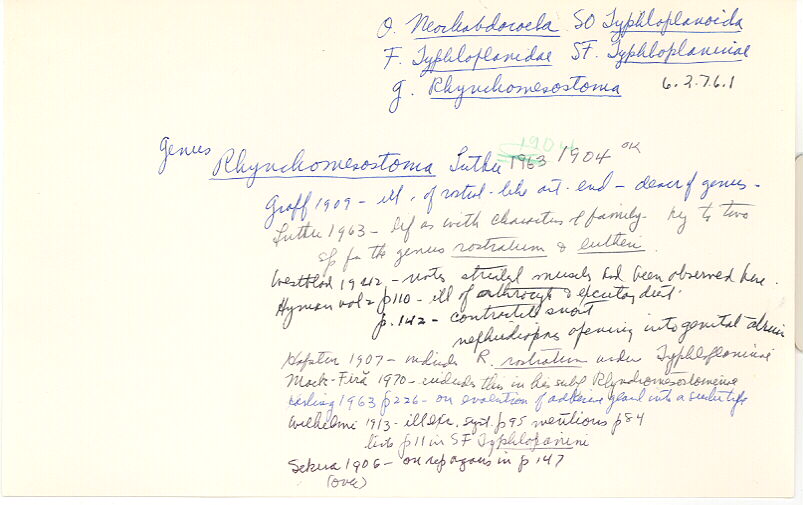 O. Neorhabdocoela SO Typhloplanoida
F. Typhloplanidae SF. Typhloplaninae
g. Rhynchomesostoma 6.2.7.6.1
1904
Genus Rhynchomesostoma Luther 1963 1904 OK
Graff 1909 - ill. of rostral-like ant. end - descr of genus -
Luther 1963 - def as with characters of family - key to two
sp for the genus rostratum & lutheri.
Westblad 19 - notes striated muscles had been observed here.
Hyman vol 2 p 110 - ill of athrocyte & excretory duct.
p. 142 - contractile snout
nephridiopores opening into genital atrium
1907 - includes R. rostratum under Typhloplaninae
Mack-Fira 1970 - includes this in her subf Rhynchomesostominae
Karling 1963 p 226 - on evolution of adhesive gland into a
Wilhelmi 1913 - ill exc. syst. p 95 mentions p 84
lists p 11 in SF Typhlopanini
Sekera 1906 - on rep organs in p 147
(over)